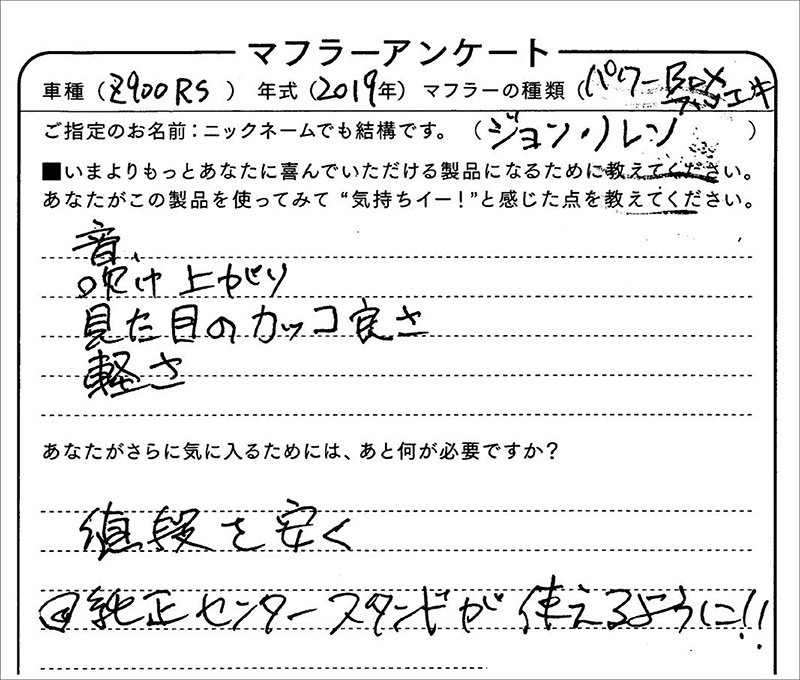 マフラーアンケート
車種（Z900RS）年式（2019年）マフラーの種類（パワーBOX
フルエキ
ご指定のお名前：ニックネームでも結構です。（ジョン・リレン）
■いまよりもっとあなたに喜んでいただける製品になるために教えてください。
あなたがこの製品を使ってみて“気持ちイー！”と感じた点を教えてください。
音、
吹け上がり
見た目のカッコ良さ
軽さ
あなたがさらに気に入るためには、あと何が必要ですか？
値段を安く
純正センタースタンドが使えるように!!